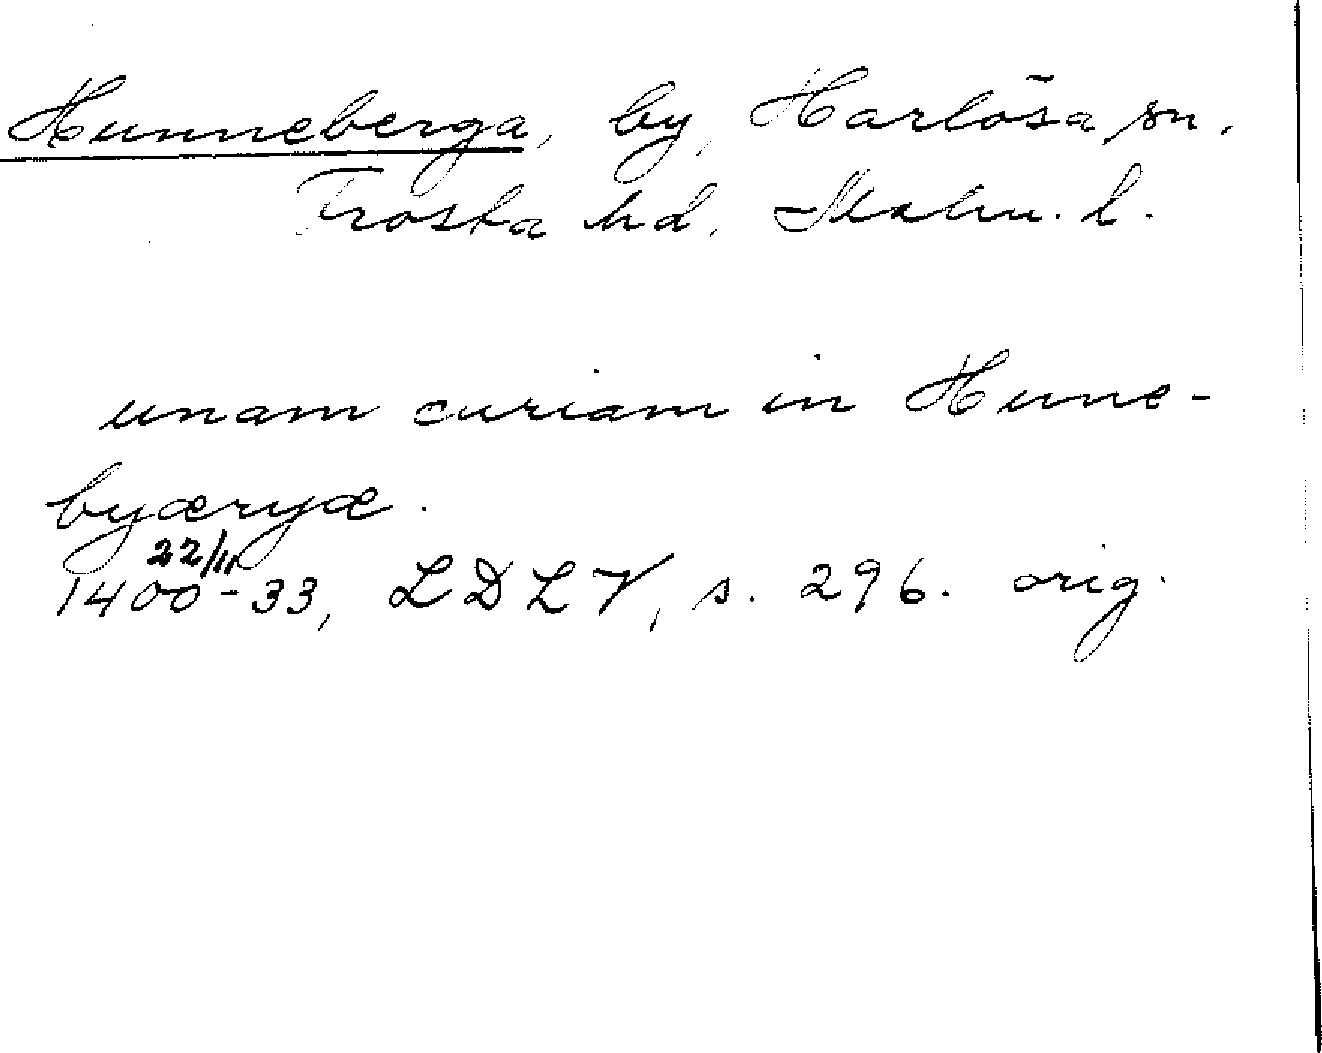 Hunneberga, by, Harlösa sn.
Frosta hd, Malm. l.
unam curiam in Hune-
byæryæ.
22/11
1400-33, LDLV, s. 296. orig.